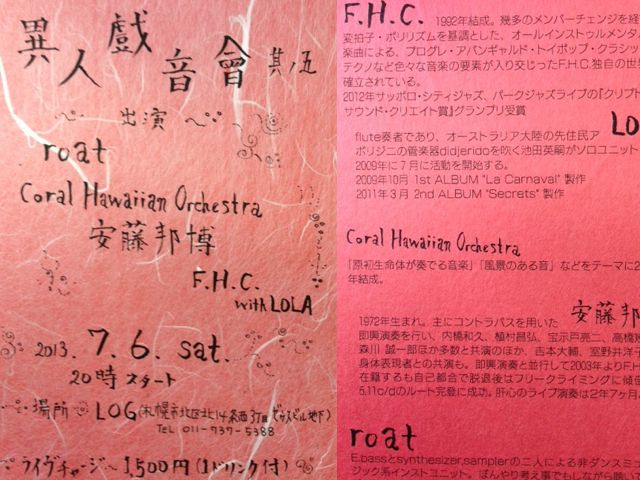 異人戲音會 其ノ五
出演
roat
Coral Hawaiian Orchestra
安藤邦博
F.H.C.
with LOLA
2013. 7. 6. sat.
20時スタート
場所 LOG (札幌市北区北14条西3丁目ゼウスビル地下)
TEL 011-737-5388
ライヴチャージ 1,500円(1ドリンク付)
F.H.C. 1992年結成。幾多のメンバーチェンジを経
変拍子・ポリリズムを基調とした、オールインストゥルメンタル
楽曲による、プログレ・アバンギャルド・トイポップ・クラシック
テクノなど色々な音楽の要素が入り交じったF.H.C.独自の世界
確立されている。
2012年サッポロ・シティジャズ、パークジャズライブの『クリプト
サウンド・クリエイト賞』グランプリ受賞
LO
flute奏者であり、オーストラリア大陸の先住民ア
ボリジニの管楽器didjeridoを吹く池田英嗣がソロユニット
2009年に7月に活動を開始する。
2009年10月 1st ALBUM "La Carnaval" 製作
2011年3月 2nd ALBUM "Secrets" 製作
Coral Hawaiian Orchestra
「原初生命体が奏でる音楽」「風景のある音」などをテーマに2
年結成。
安藤邦
1972年生まれ。主にコントラバスを用いた
即興演奏を行い、内橋和久、植村昌弘、宝示戸亮二、高橋幾
森川誠一郎ほか多数と共演のほか、吉本大輔、室野井洋子
身体表現者との共演も。即興演奏と並行して2003年よりF.H
在籍するも自己都合で脱退後はフリークライミングに傾
5.11c/dのルート完登に成功。肝心のライブ演奏は2年7ヶ月
roat
E.bassとsynthesizer,samplerの二人による非ダンスミ
ジック系インストユニット。ぼんやり考え事でもしながら聴い